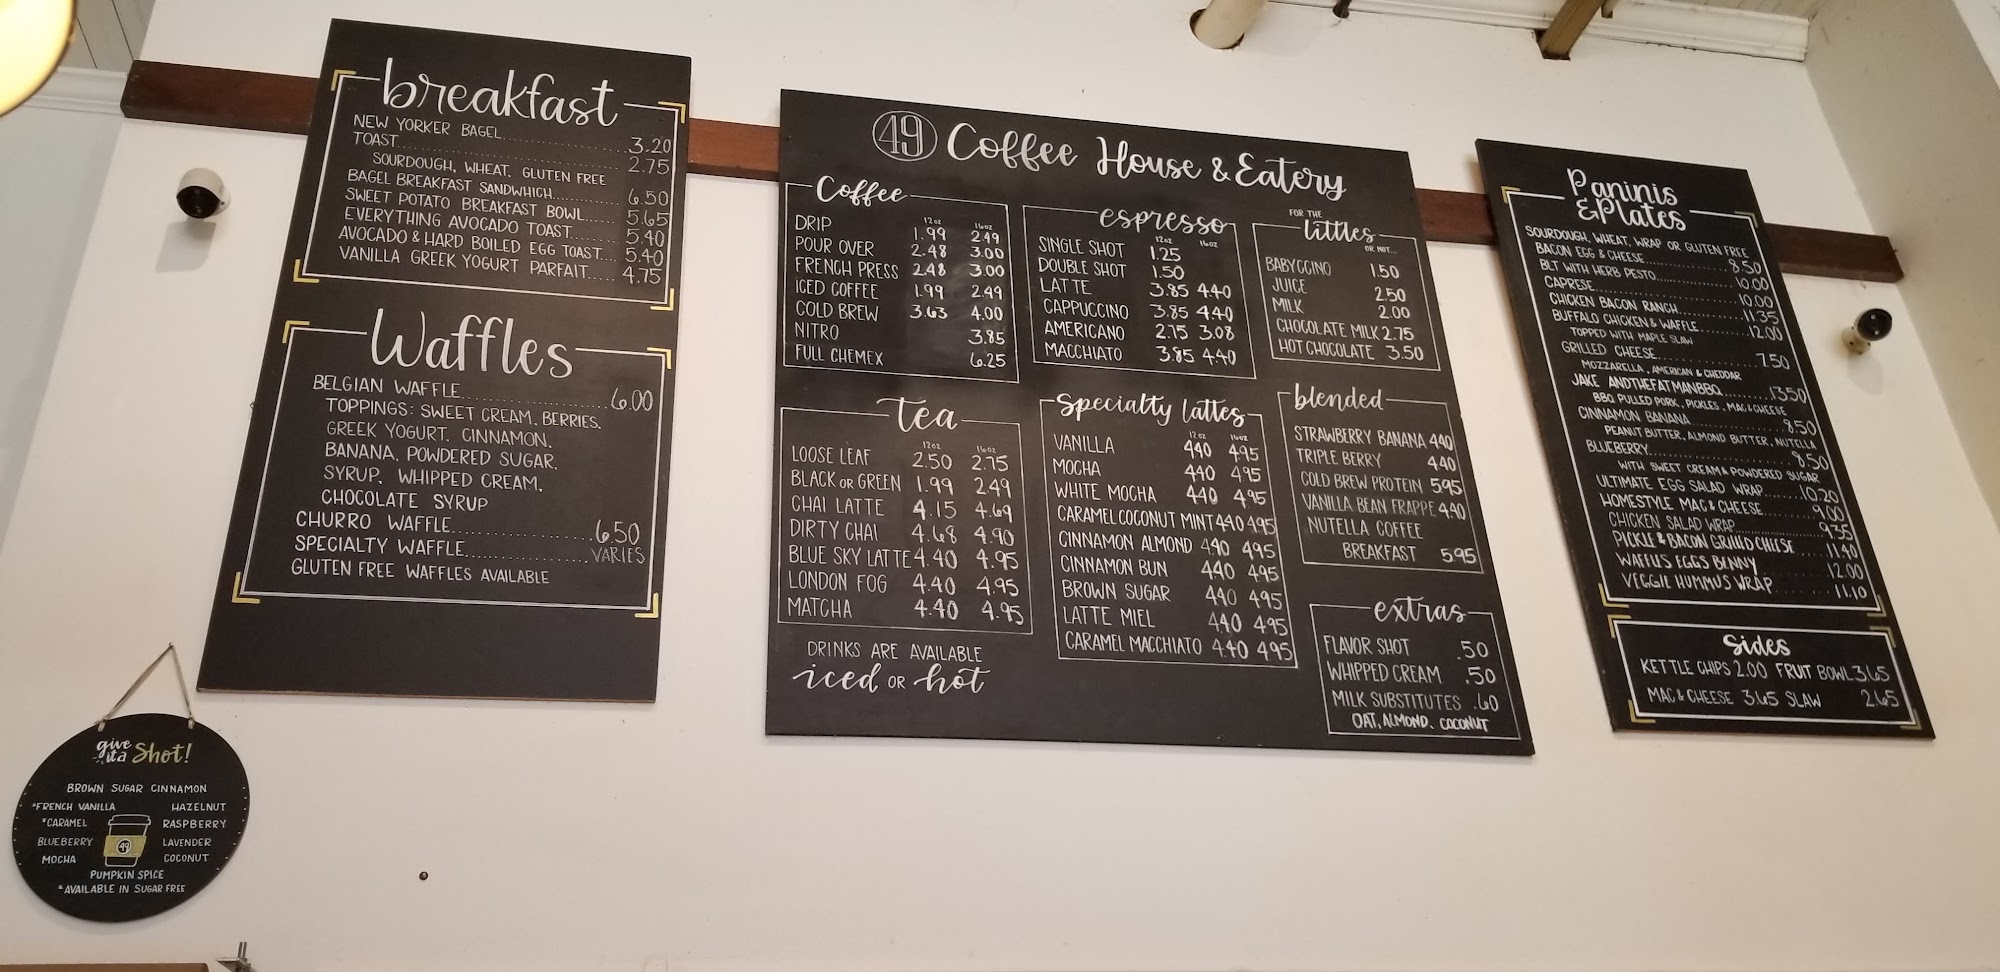 breakfast
NEW YORKER BAGEL 3.20
TOAST 2.75
SOURDOUGH, WHEAT, GLUTEN FREE
BAGEL BREAKFAST SANDWHICH 6.50
SWEET POTATO BREAKFAST BOWL 5.65
EVERYTHING AVOCADO TOAST 5.40
AVOCADO & HARD BOILED EGG TOAST 5.40
VANILLA GREEK YOGURT PARFAIT 4.75
Waffles
BELGIAN WAFFLE 6.00
TOPPINGS: SWEET CREAM, BERRIES,
GREEK YOGURT, CINNAMON,
BANANA, POWDERED SUGAR,
SYRUP, WHIPPED CREAM,
CHOCOLATE SYRUP
CHURRO WAFFLE 6.50
SPECIALTY WAFFLE VARIES
GLUTEN FREE WAFFLES AVAILABLE
give it a Shot!
BROWN SUGAR CINNAMON
*FRENCH VANILLA HAZELNUT
*CARAMEL RASPBERRY
BLUEBERRY 49 LAVENDER
MOCHA COCONUT
PUMPKIN SPICE
*AVAILABLE IN SUGAR FREE
49 Coffee House & Eatery
Coffee
12oz 16oz
DRIP 1.99 2.49
POUR OVER 2.48 3.00
FRENCH PRESS 2.48 3.00
ICED COFFEE 1.99 2.49
COLD BREW 3.63 4.00
NITRO 3.85
FULL CHEMEX 6.25
tea
12oz 16oz
LOOSE LEAF 2.50 2.75
BLACK OR GREEN 1.99 2.49
CHAI LATTE 4.15 4.69
DIRTY CHAI 4.68 4.90
BLUE SKY LATTE 4.40 4.95
LONDON FOG 4.40 4.95
MATCHA 4.40 4.95
DRINKS ARE AVAILABLE
iced OR hot
espresso
12oz 16oz
SINGLE SHOT 1.25
DOUBLE SHOT 1.50
LATTE 3.85 4.40
CAPPUCCINO 3.85 4.40
AMERICANO 2.75 3.08
MACCHIATO 3.85 4.40
Specialty lattes
12oz 16oz
VANILLA 4.40 4.95
MOCHA 4.40 4.95
WHITE MOCHA 4.40 4.95
CARAMEL COCONUT MINT 4.40 4.95
CINNAMON ALMOND 4.40 4.95
CINNAMON BUN 4.40 4.95
BROWN SUGAR 4.40 4.95
LATTE MIEL 4.40 4.95
CARAMEL MACCHIATO 4.40 4.95
FOR THE
littles
OR NOT...
BABYCCINO 1.50
JUICE 2.50
MILK 2.00
CHOCOLATE MILK 2.75
HOT CHOCOLATE 3.50
blended
STRAWBERRY BANANA 4.40
TRIPLE BERRY 4.40
COLD BREW PROTEIN 5.95
VANILLA BEAN FRAPPE 4.40
NUTELLA COFFEE
BREAKFAST 5.95
extras
FLAVOR SHOT .50
WHIPPED CREAM .50
MILK SUBSTITUTES .60
OAT, ALMOND, COCONUT
Paninis
& Plates
SOURDOUGH, WHEAT, WRAP OR GLUTEN FREE
BACON EGG & CHEESE 8.50
BLT WITH HERB PESTO 10.00
CAPRESE 10.00
CHICKEN BACON RANCH 11.35
BUFFALO CHICKEN & WAFFLE 12.00
TOPPED WITH MAPLE SLAW
GRILLED CHEESE 7.50
MOZZARELLA, AMERICAN & CHEDDAR
JAKE ANDTHEFATMANBBQ 13.50
BBQ PULLED PORK, PICKLES, MAC & CHEESE
CINNAMON BANANA 8.50
PEANUT BUTTER, ALMOND BUTTER, NUTELLA
BLUEBERRY 8.50
WITH SWEET CREAM & POWDERED SUGAR
ULTIMATE EGG SALAD WRAP 10.20
HOMESTYLE MAC & CHEESE 9.00
CHICKEN SALAD WRAP 9.35
PICKLE & BACON GRILLD CHEESE 11.40
WAFFLES EGGS BENNY 12.00
VEGGIE HUMMUS WRAP 11.10
Sides
KETTLE CHIPS 2.00 FRUIT BOWL 3.65
MAC & CHEESE 3.65 SLAW 2.65